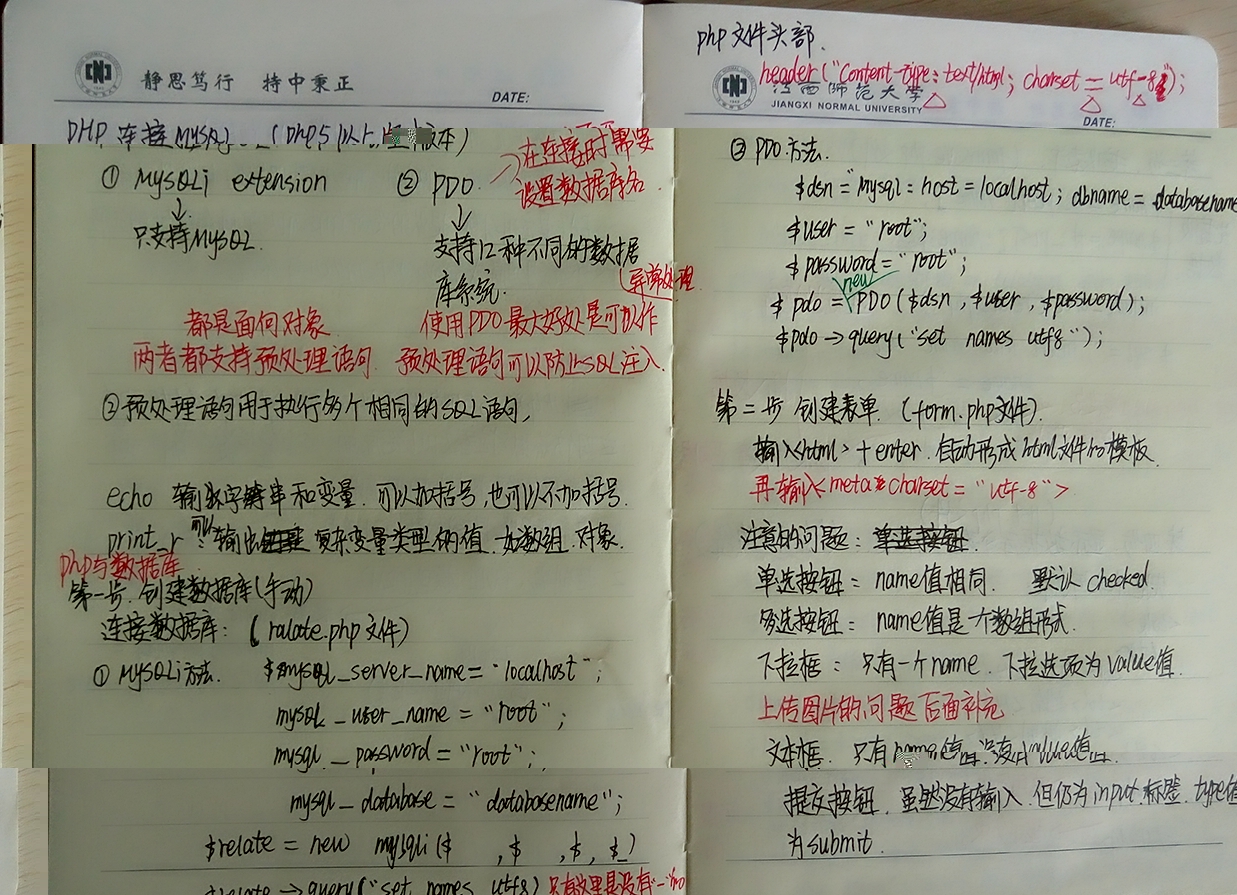 静思笃行 持中秉正
DATE:
PHP 连接MySQL (php5以上版本)
① MySQLi extension ② PDO 在连接时需要
设置数据库名
只支持MySQL 支持12种不同的数据
库系统. 异常处理
都是面向对象 使用PDO最大好处是可
两者都支持预处理语句. 预处理语句可以防止SQL注入.
预处理语句用于执行多个相同的SQL语句,
echo 输出字符串和变量. 可以加括号,也可以不加括号.
print_r 可以输出 复杂变量类型的值. 如数组. 对象.
php与数据库
第一步. 创建数据库(手动)
连接数据库: (ralate.php文件)
① MySQLi方法. $mysql_server_name = "localhost";
mysql_user_name = "root";
mysql_password = "root";
mysql_database = "databasename";
$relate = new mysqli($ ,$ ,$, $_)
$relate → query("set names utf8") 只有这里是没有
php文件头部.
header("Content-type: text/html; charset = utf-8");
江西师范大学
JIANGXI NORMAL UNIVERSITY
DATE:
② PDO方法.
$dsn = "Mysql: host = localhost; dbname = databasename
$user = "root";
$password = "root";
new
$pdo = PDO($dsn, $user, $password);
$pdo → query("set names utf8");
第二步 创建表单. (form.php文件).
输入<html> + enter. 自动形成html文件的模板.
再输入<meta charset = "utf-8">
注意的问题: 单选按钮
单选按钮: name值相同. 默认checked.
多选按钮: name值是一个数组形式.
下拉框: 只有一个name. 下拉选项为value值.
上传图片的问题后面补充
文本框. 只有name值. 没有value值.
提交按钮. 虽然没有输入. 但仍为input标签. type值
为submit.